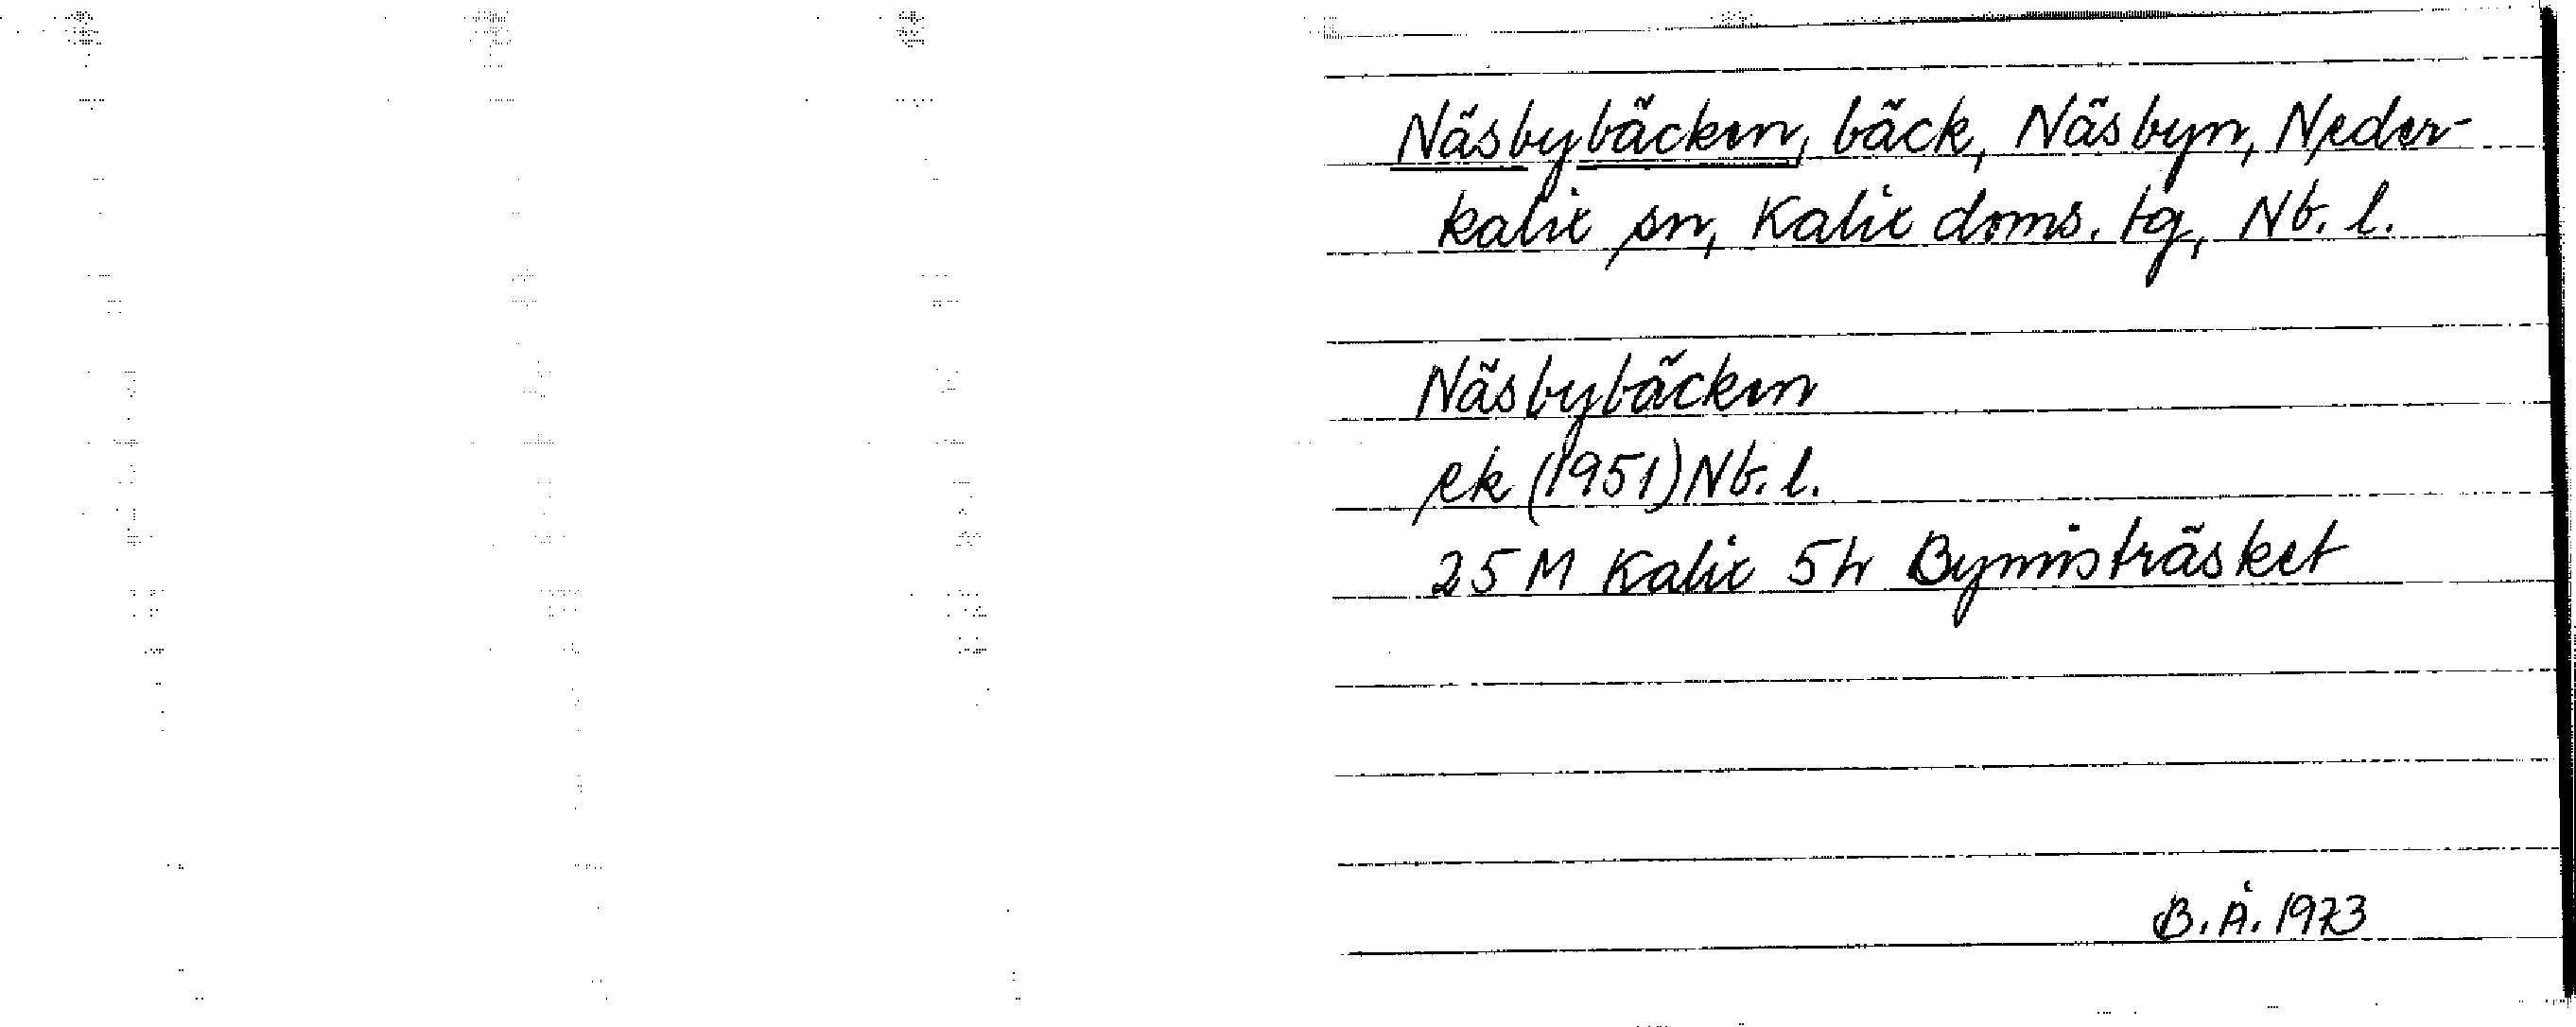 Näsbybäcken, bäck, Näsbyn, Neder-
kalix sn, Kalix doms. tg, Nb. l.
Näsbybäcken
ek (1951) Nb. l.
25 M Kalix 5h Bymisträsket
B. Å. 1973